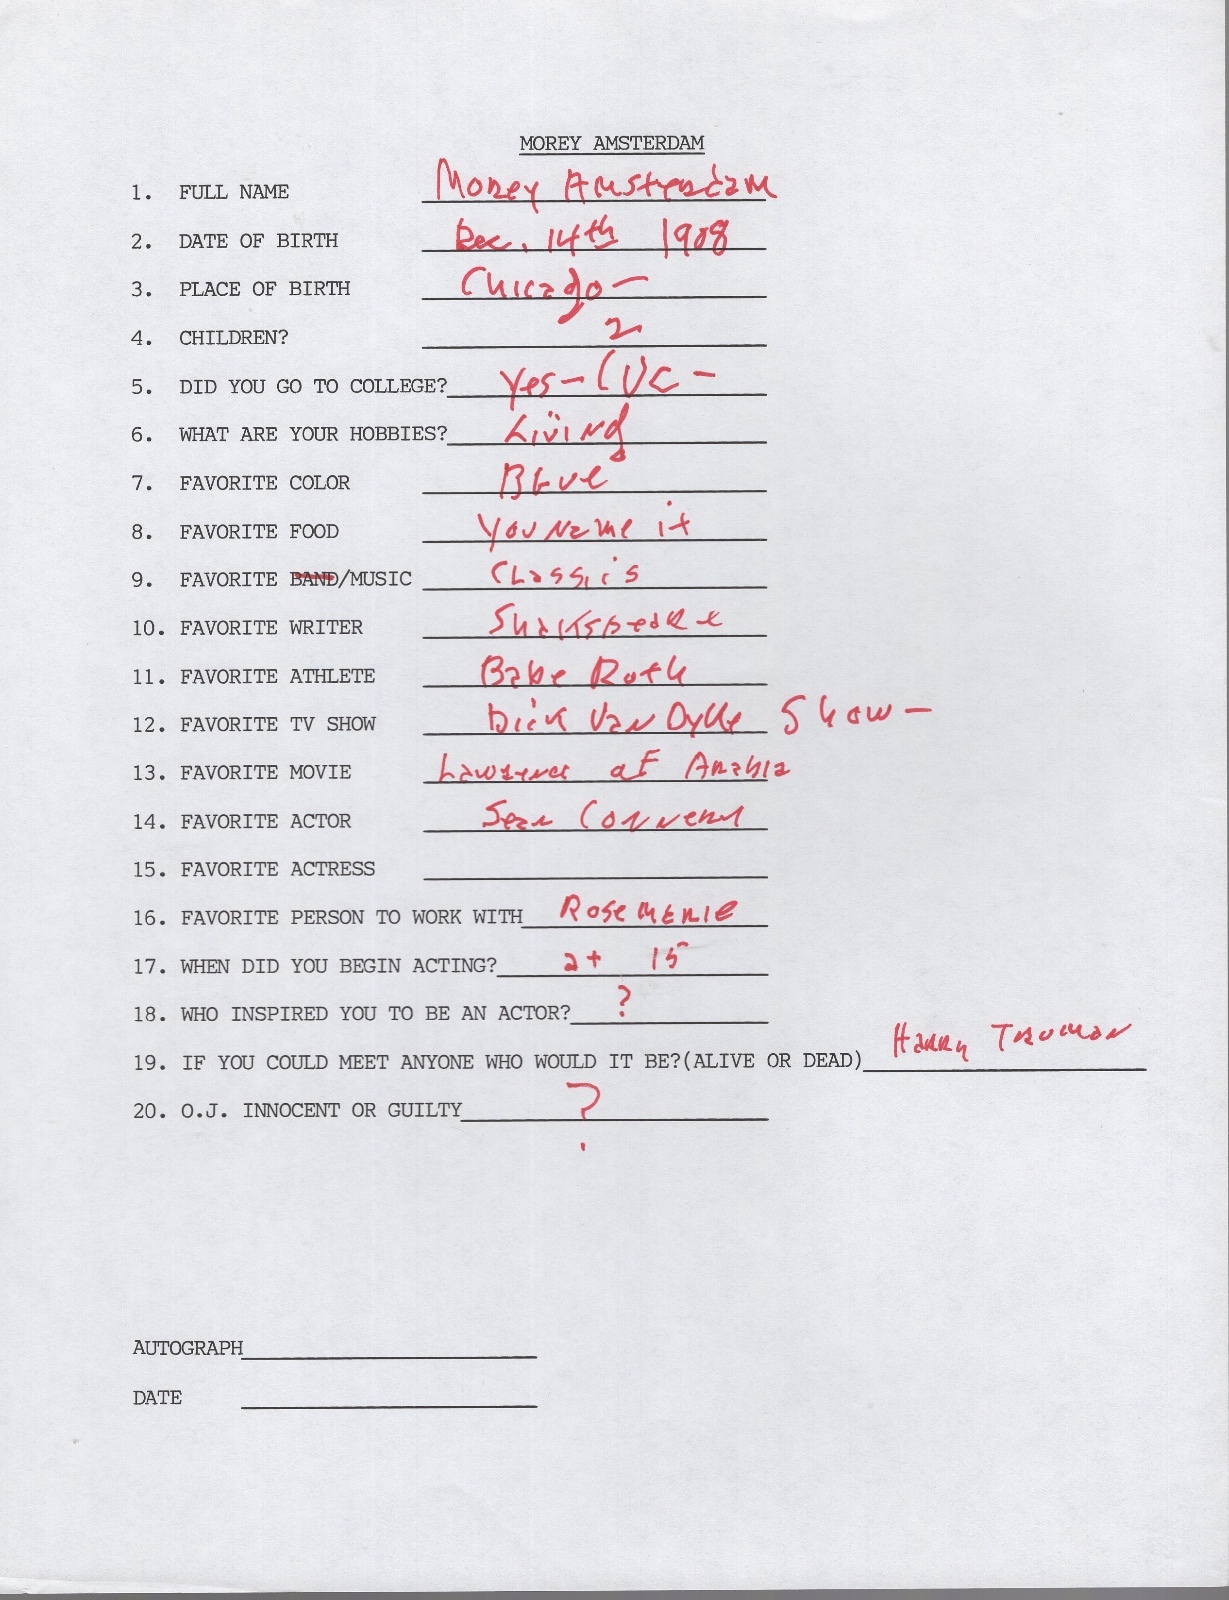 MOREY AMSTERDAM
1. FULL NAME Morey Amsterdam
2. DATE OF BIRTH Dec. 14th 1908
3. PLACE OF BIRTH Chicago —
4. CHILDREN? 2
5. DID YOU GO TO COLLEGE? Yes — UC —
6. WHAT ARE YOUR HOBBIES? Living
7. FAVORITE COLOR Blue
8. FAVORITE FOOD You Name it
9. FAVORITE BAND/MUSIC Classics
10. FAVORITE WRITER Shakspeare
11. FAVORITE ATHLETE Babe Ruth
12. FAVORITE TV SHOW Dick Van Dyke Show —
13. FAVORITE MOVIE Lawrence of Arabia
14. FAVORITE ACTOR Sean Connery
15. FAVORITE ACTRESS
16. FAVORITE PERSON TO WORK WITH Rose Marie
17. WHEN DID YOU BEGIN ACTING? at 15
18. WHO INSPIRED YOU TO BE AN ACTOR? ?
19. IF YOU COULD MEET ANYONE WHO WOULD IT BE?(ALIVE OR DEAD) Harry Truman
20. O.J. INNOCENT OR GUILTY ?
AUTOGRAPH
DATE